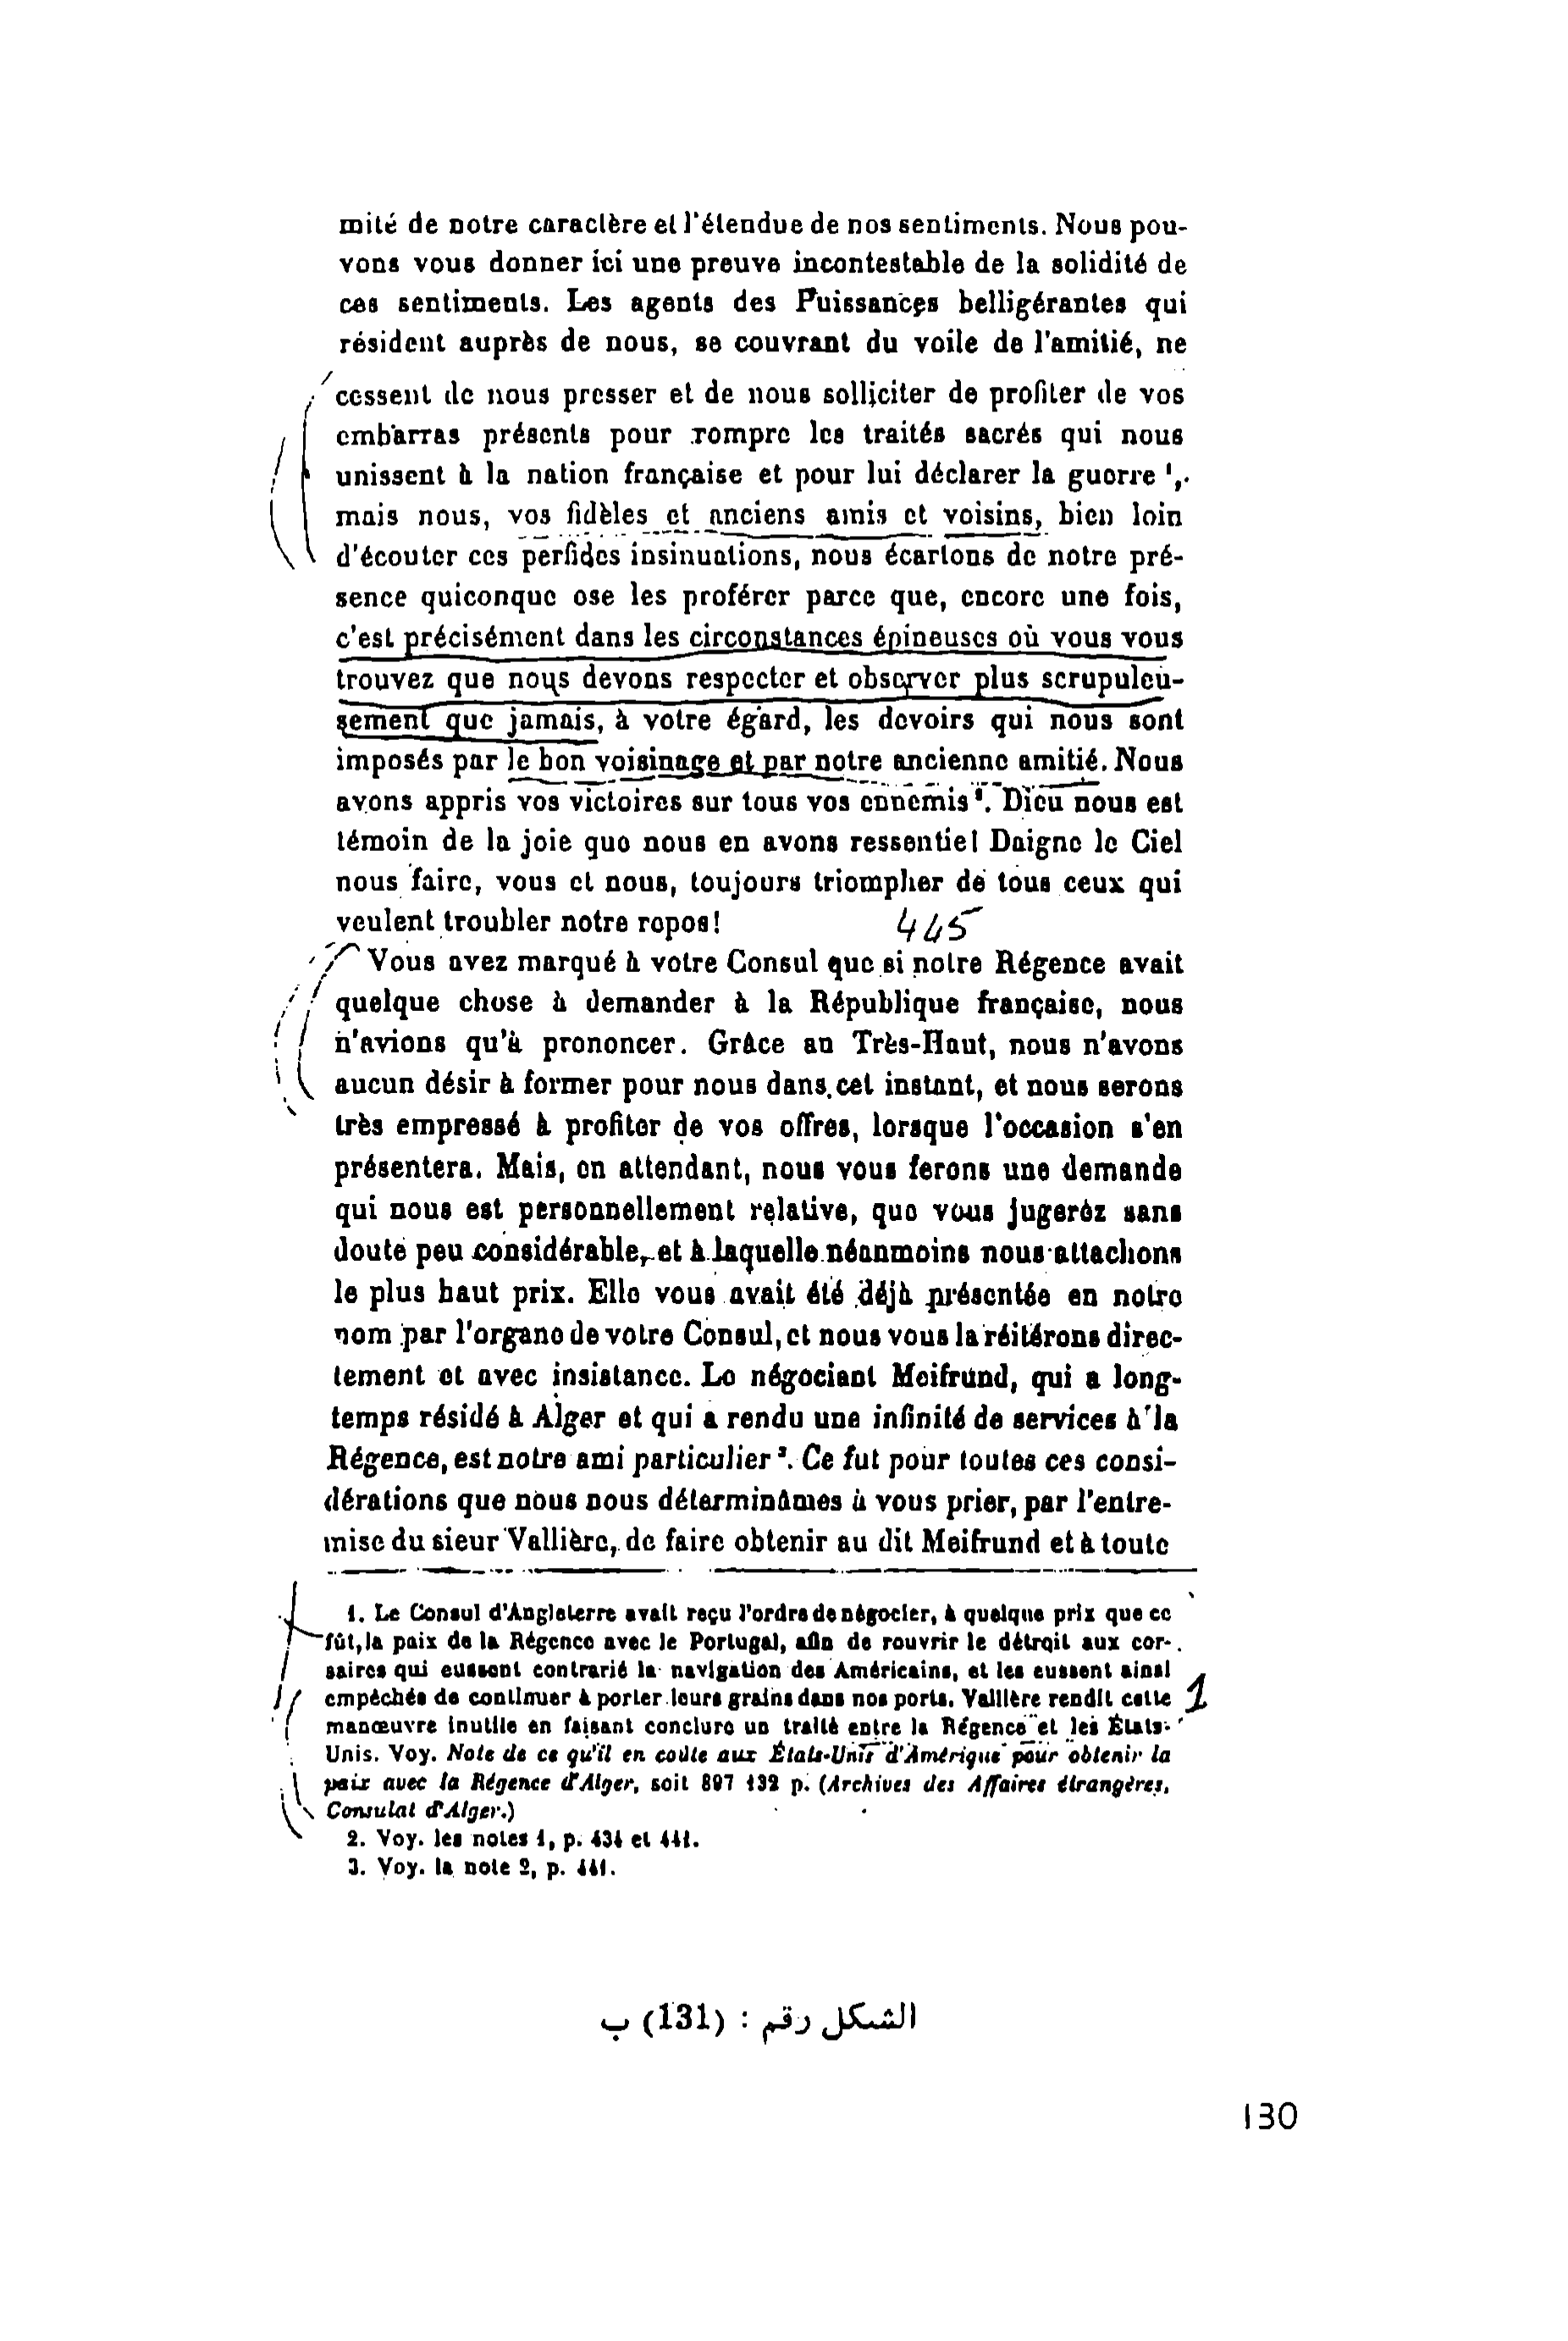 mité de notre caractère et l'étendue de nos sentiments. Nous pou-
vons vous donner ici une preuve incontestable de la solidité de
ces sentiments. Les agents des Puissances belligérantes qui
résident auprès de nous, se couvrant du voile de l'amitié, ne
cessent de nous presser et de nous solliciter de profiter de vos
embarras présents pour rompre les traités sacrés qui nous
unissent à la nation française et pour lui déclarer la guerre ¹,
mais nous, vos fidèles et anciens amis et voisins, bien loin
d'écouter ces perfides insinuations, nous écartons de notre pré-
sence quiconque ose les proférer parce que, encore une fois,
c'est précisément dans les circonstances épineuses où vous vous
trouvez que nous devons respecter et observer plus scrupuleu-
sement que jamais, à votre égard, les devoirs qui nous sont
imposés par le bon voisinage et par notre ancienne amitié. Nous
avons appris vos victoires sur tous vos ennemis ². Dieu nous est
témoin de la joie que nous en avons ressentie! Daigne le Ciel
nous faire, vous et nous, toujours triompher de tous ceux qui
veulent troubler notre repos! 445
Vous avez marqué à votre Consul que si notre Régence avait
quelque chose à demander à la République française, nous
n'avions qu'à prononcer. Grâce au Très-Haut, nous n'avons
aucun désir à former pour nous dans cet instant, et nous serons
très empressé à profiter de vos offres, lorsque l'occasion s'en
présentera. Mais, en attendant, nous vous ferons une demande
qui nous est personnellement relative, que vous jugeréz sans
doute peu considérable, et à laquelle néanmoins nous attachons
le plus haut prix. Elle vous avait été déjà présentée en notre
nom par l'organe de votre Consul, et nous vous la réitérons direc-
tement et avec insistance. Le négociant Meifrund, qui a long-
temps résidé à Alger et qui a rendu une infinité de services à la
Régence, est notre ami particulier ³. Ce fut pour toutes ces consi-
dérations que nous nous déterminâmes à vous prier, par l'entre-
mise du sieur Vallière, de faire obtenir au dit Meifrund et à toute
1. Le Consul d'Angleterre avait reçu l'ordre de négocier, à quelque prix que ce
fût, la paix de la Régence avec le Portugal, afin de rouvrir le détroit aux cor-
saires qui eussent contrarié la navigation des Américains, et les eussent ainsi
empêchés de continuer à porter leurs grains dans nos ports. Vallière rendit cette 1
manœuvre inutile en faisant conclure un traité entre la Régence et les États-
Unis. Voy. Note de ce qu'il en coûte aux États-Unis d'Amérique pour obtenir la
paix avec la Régence d'Alger, soit 897 132 p. (Archives des Affaires étrangères,
Consulat d'Alger.)
2. Voy. les notes 1, p. 434 et 441.
3. Voy. la note 2, p. 441.
الشكل رقم : (131) ب
130